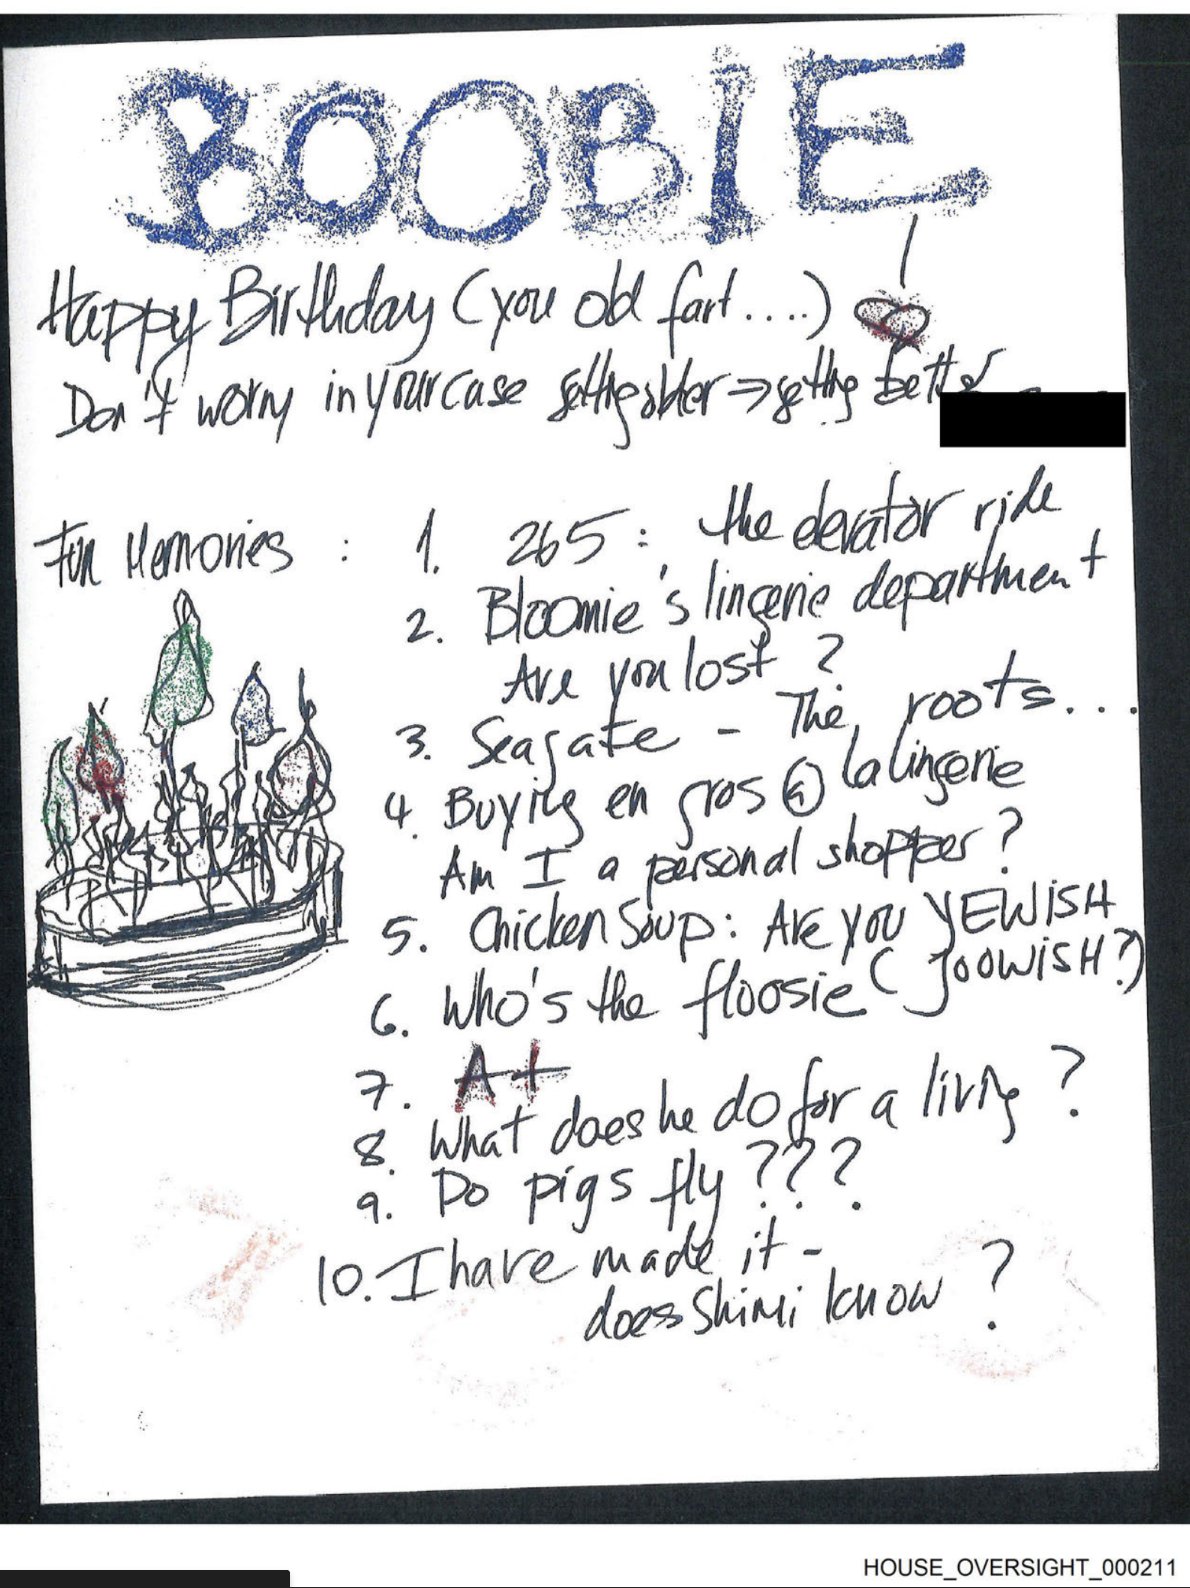 BOOBIE
Happy Birthday (you old fart....)
Don't worry in your case getting older ⇒ getting better
Fun Memories : 1. 265 : the elevator ride
2. Bloomie's lingerie department
Are you lost ?
3. Seagate - The roots...
4. Buying en gros @ la lingerie
Am I a personal shopper ?
5. Chicken Soup: Are you YEWiSH
( JOOWiSH?)
6. Who's the floosie
7. A+
8. What does he do for a living ?
9. Do pigs fly ???
10. I have made it -
does Shimi know ?
HOUSE_OVERSIGHT_000211